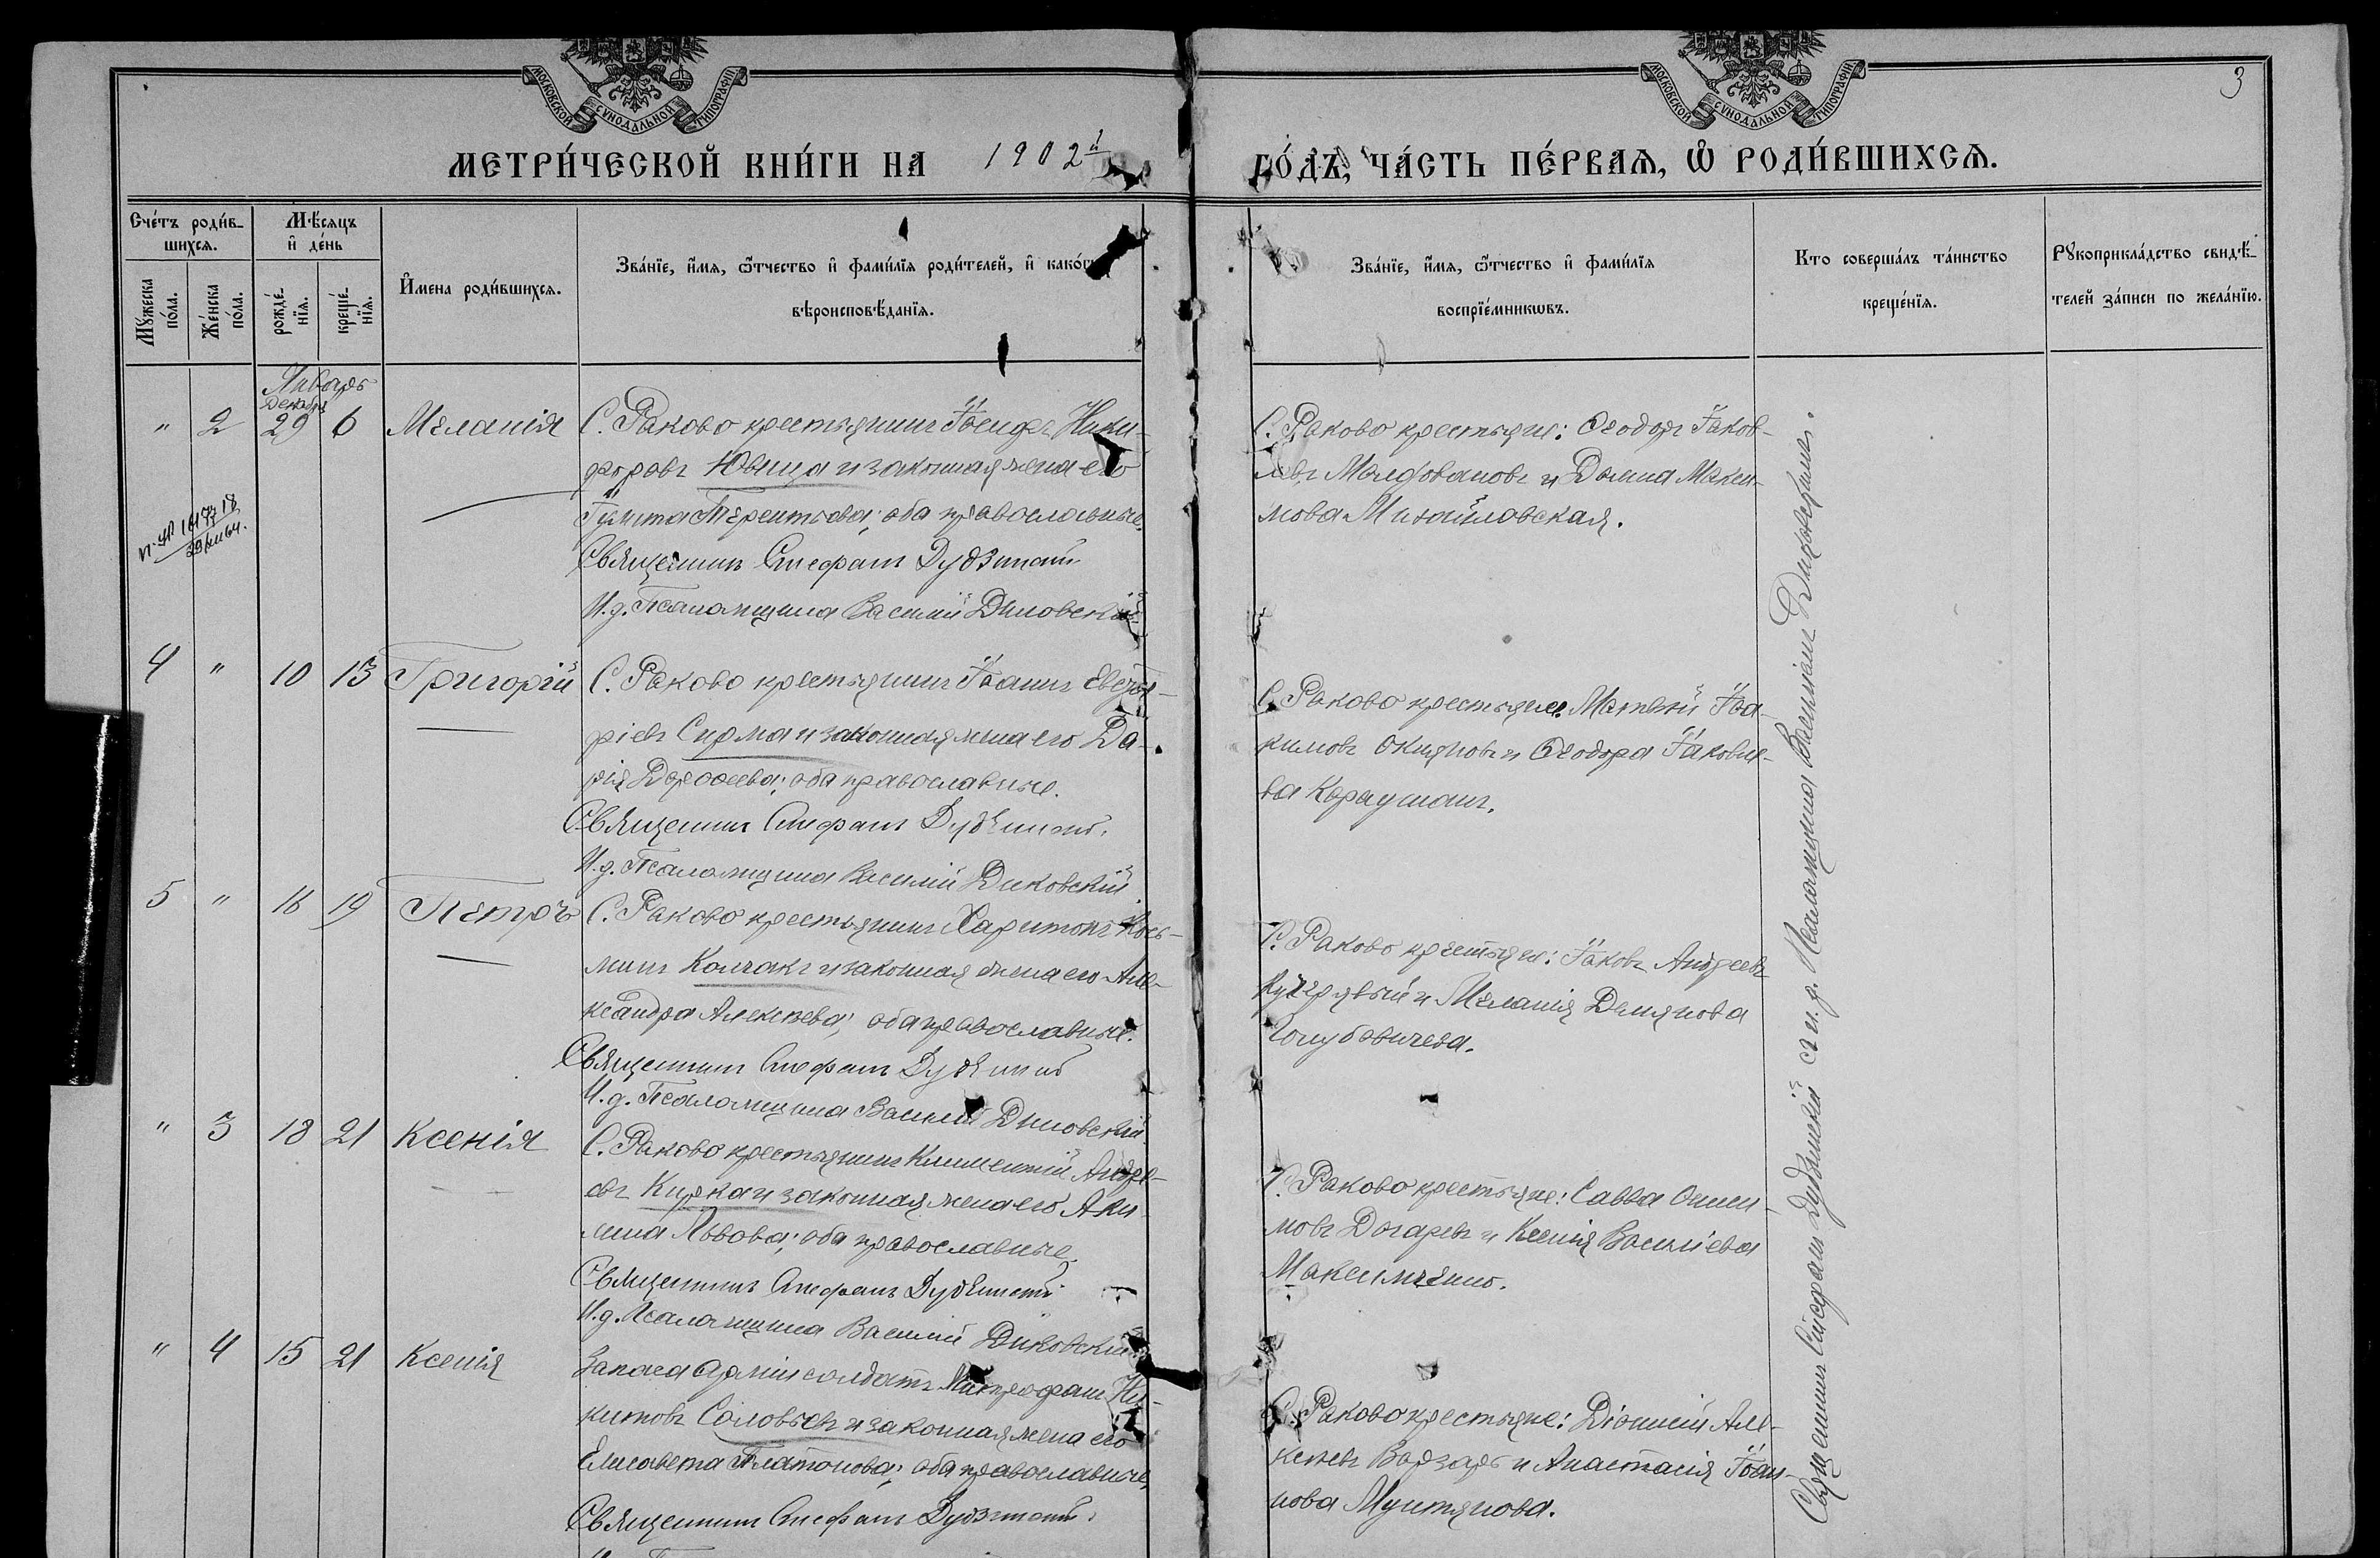 МОСКОВСКОЙ СѴНОДАЛЬНОЙ ТИПОГРАФІИ
МОСКОВСКОЙ СѴНОДАЛЬНОЙ ТИПОГРАФІИ
3
МЕТРИ́ЧЕСКОЙ КНИ́ГИ НА 1902й
ГО́ДЪ, ЧА́СТЬ ПЕ́РВАЯ, Ѡ РОДИ́ВШИХСЯ.
Сче́тъ роди́в-
шихся.
Му́жеска
по́ла.
Же́нска
по́ла.
Мѣ́сяцъ
и де́нь
рожде́-
нїя.
креще́-
нїя.
И́мена роди́вшихся.
Зва́нїе, и́мя, ѻ́тчество и фами́лїя роди́телей, и како́гѡ
вѣроисповѣ́данїя.
Зва́нїе, и́мя, ѻ́тчество и фами́лїя
воспрїе́мникѡвъ.
Кто соверша́лъ та́инство
креще́нїя.
Рꙋкоприкла́дство свидѣ́-
телей за́писи по жела́нїю.
Январь
Декабря
" 2 29 6 Меланія
С. Раково крестьянинъ Іосифъ Ники-
форовъ Ювица и законная жена его
Терентьева; оба православные.
Священникъ Стефанъ Дубзинскій
И.д. Псаломщика Василій Диковскій
С. Раково крестьяне: Ѳеодоръ Іаков-
левъ Молдовановъ и Домна Макси-
мова Михайловская.
4 " 10 13 Григорій
С. Раково крестьянинъ Іоаннъ
ріевъ Сирма и законная жена его Да-
рія Дороѳеева; оба православные.
Священникъ Стефанъ Дубзинскій.
И.д. Псаломщика Василій Диковскій
С. Раково крестьяне: Матвѣй Іоа-
кимовъ Окияновъ и Ѳеодора Іаковле-
ва Караушанъ.
5 " 16 19 Петръ
С. Раково крестьянинъ Харитонъ Кось-
минъ Колчакъ и законная жена его Але-
ксандра Алексѣева; оба православные.
Священникъ Стефанъ Дубзинскій
И.д. Псаломщика Василій Диковскій
С. Раково крестьяне: Іаковъ Андреевъ
Кучерявый и Меланія Демянова
Голубовичева.
" 3 18 21 Ксенія
С. Раково крестьянинъ Климентій Андре-
евъ Кирка и законная жена его Аки-
лина Львова; оба православные.
Священникъ Стефанъ Дубзинскій
И.д. Псаломщика Василій Диковскій
С. Раково крестьяне: Савва Ониси-
мовъ Догаревъ и Ксенія Василіева
Максимченко.
" 4 15 21 Ксенія
Запаса арміи солдатъ Митрофанъ Ни-
китовъ Соловьевъ и законная жена его
Елисавета Платонова; оба православные.
Священникъ Стефанъ Дубзинскій.
С. Раково крестьяне: Діонисій Але-
ксѣевъ Варзарь и Анастасія Іоан-
нова Мунтянова.
Священникъ Стефанъ Дубзинскій съ и.д. Псаломщика Василіемъ Диковскимъ.